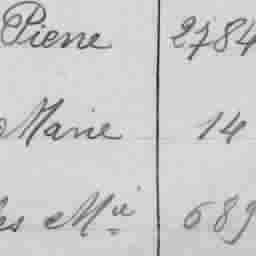 Pierre 2784
Marie 14
es Mie 689